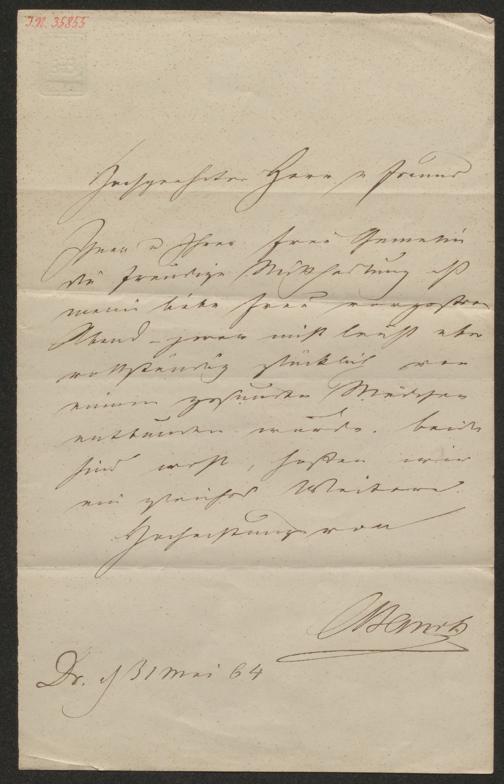 I.N. 35855
Hochgeehrter Herr u Freund
Ihnen u Ihrer Frau Gemalin
die freudige Mittheilung daß
meine liebe Frau vorgestern
Abend – zwar nicht leicht aber
vollständig glücklich von
einem gesunden Mädchen
entbunden wurde. Beide
sind wohl, hoffen wir
ein gleiches Weitere.
Hochachtungsvoll
CBanck
Dr. d 31 Mai 64